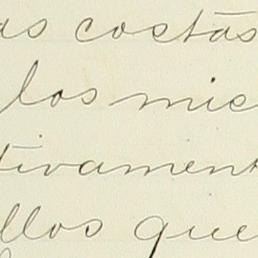 as costas
los mie
tivament
llos que